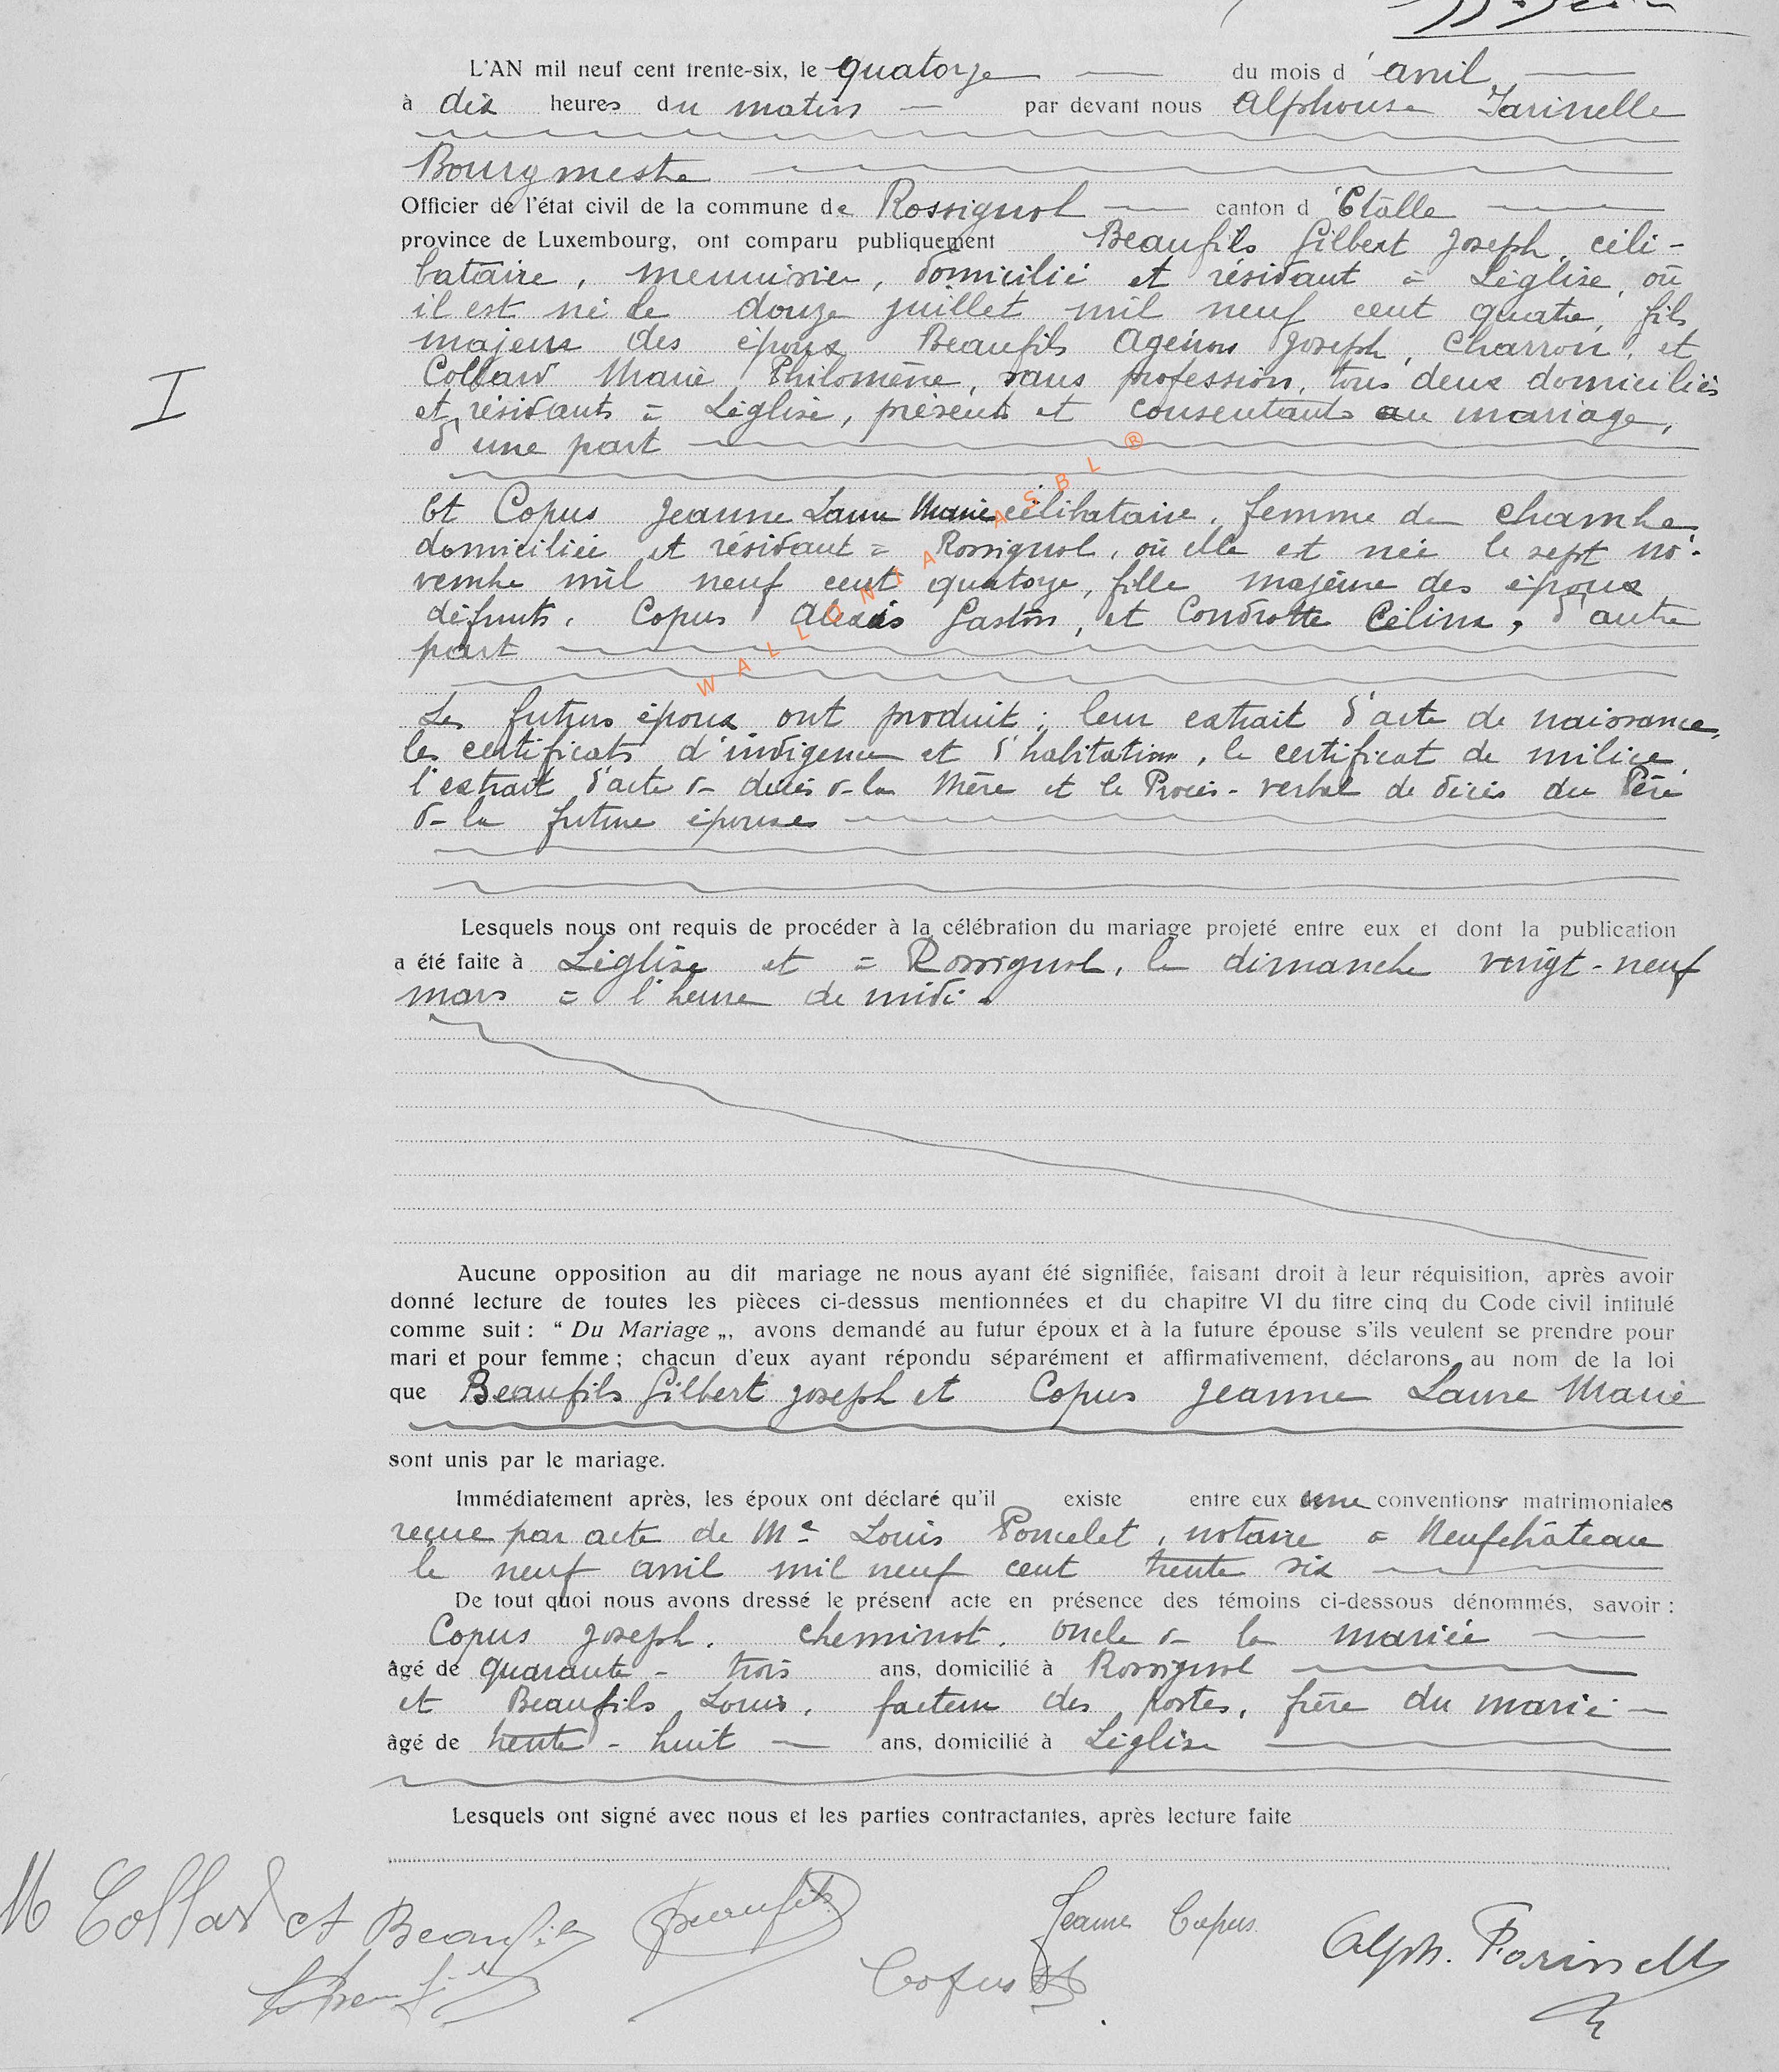 L'AN mil neuf cent trente-six, le quatorze du mois d'avril
à dix heures du matin par devant nous Alphonse Farinelle
Bourgmestre
Officier de l'état civil de la commune de Rossignol canton d'Etalle
province de Luxembourg, ont comparu publiquement Beaufils Gilbert Joseph, céli-
bataire, menuisier, domicilié et résidant à Léglise, où
il est né le douze juillet mil neuf cent quatre, fils
majeur des époux Beaufils Agénor Joseph, Charron, et
Collard Marie Philomène, sans profession, tous deux domiciliés
et résidants à Léglise, présents et consentants au mariage,
d'une part
Et Copus Jeanne Laure Marie célibataire, femme de chambre
domiciliée et résidant à Rossignol, où elle est née le sept no-
vembre mil neuf cent quatorze, fille majeure des époux
défunts, Copus Alexis Gaston, et Condrotte Célina, d'autre
part
WALLONIA ASBL ®
Les futurs époux ont produit : leur extrait d'acte de naissance,
les certificats d'indigence et d'habitation, le certificat de milice,
l'extrait d'acte de décès de la Mère et le Procès-verbal de décès du Père
de la future épouse
Lesquels nous ont requis de procéder à la célébration du mariage projeté entre eux et dont la publication
a été faite à Léglise et à Rossignol, le dimanche vingt-neuf
mars à l'heure de midi.
I
Aucune opposition au dit mariage ne nous ayant été signifiée, faisant droit à leur réquisition, après avoir
donné lecture de toutes les pièces ci-dessus mentionnées et du chapitre VI du titre cinq du Code civil intitulé
comme suit : “ Du Mariage „, avons demandé au futur époux et à la future épouse s'ils veulent se prendre pour
mari et pour femme ; chacun d'eux ayant répondu séparément et affirmativement, déclarons au nom de la loi
que Beaufils Gilbert Joseph et Copus Jeanne Laure Marie
sont unis par le mariage.
Immédiatement après, les époux ont déclaré qu'il existe entre eux une conventions matrimoniales
reçue par acte de Me Louis Poncelet, notaire à Neufchâteau
le neuf avril mil neuf cent trente six
De tout quoi nous avons dressé le présent acte en présence des témoins ci-dessous dénommés, savoir :
Copus Joseph, cheminot, oncle de la mariée
âgé de quarante-trois ans, domicilié à Rossignol
et Beaufils Louis, facteur des postes, frère du marié
âgé de trente-huit ans, domicilié à Léglise
Lesquels ont signé avec nous et les parties contractantes, après lecture faite
M Collard et Beaufils Beaufils Jeanne Copus Alph. Farinelle
Copus